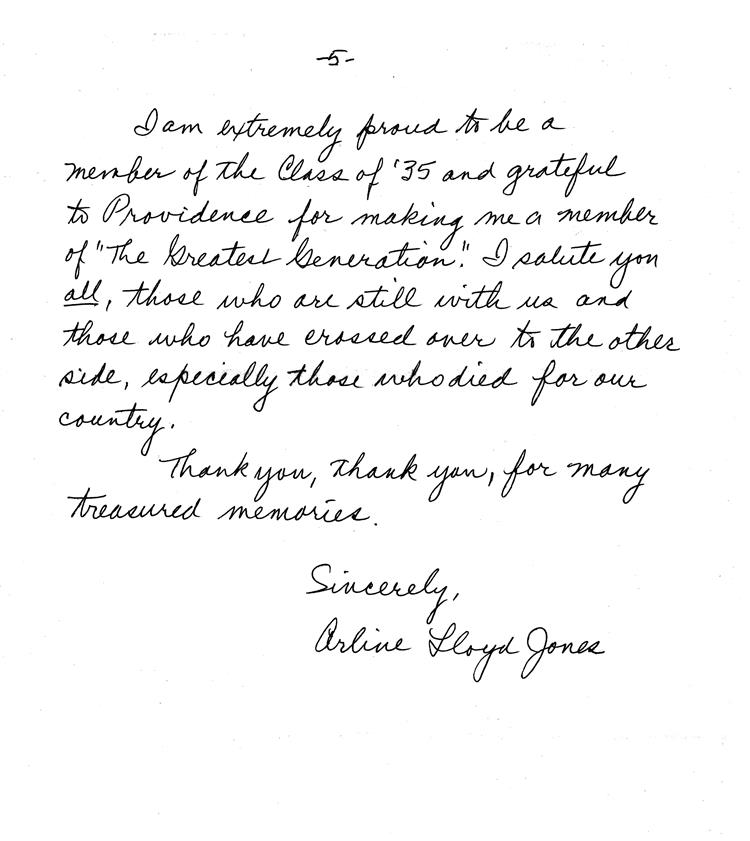 -5-
I am extremely proud to be a
member of the Class of '35 and grateful
to Providence for making me a member
of "The Greatest Generation." I salute you
all, those who are still with us and
those who have crossed over to the other
side, especially those who died for our
country.
Thank you, thank you, for many
treasured memories.
Sincerely,
Arline Lloyd Jones